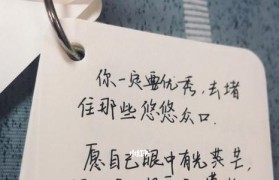 你一定要优秀，去堵
住那些悠悠众口．
愿自己眼中有光芒，